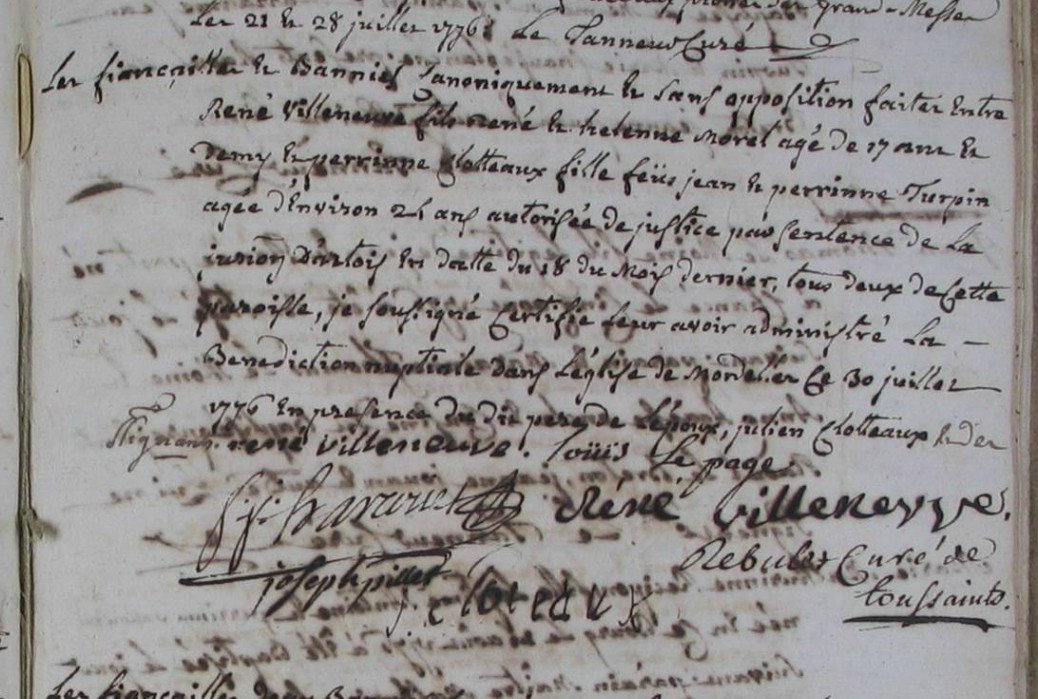 Grand-Messe
Les 21 et 28 juillet 1776. Le Tanneur Curé
Les fiançailles et Bannies Canoniquement et sans opposition faites Entre
René Villeneuve fils rené et helenne Morel agé de 17 ans et
demy et perrinne Clotteaux fille feüs jean et perrinne Turpin
agée d'Environ 21 ans autorisée de justice par sentence de La
jurion D'artois En datte du 18 du Mois dernier, tous deux de Cette
paroisse, je soussigné Certifie Leur avoir administré La -
Benediction nuptiale dans L'église de Mordelles Ce 30 juillet
1776 En presence du dit pere de L'époux, julien Clotteaux et des
Signans. rené villeneuve. loüis Le page
René villeneuve.
Rebulet Curé de
joseph pillet
j cloteaux
toussaints.
Les fiançailles